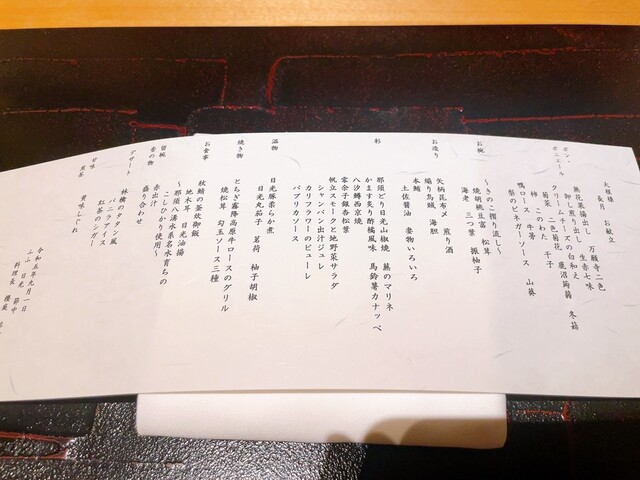 大垣様　お献立
長月
ボン・ボニエール
無花果揚出し　万願寺二色
卸し煎り出し　生赤七味
クリームチーズの白和え　冬菇
菊菜　二色菊花　鹿沼蒟蒻
柿　このわた　干子
鴨ロース　牛蒡　山葵
梨のビネガーソース
お椀
～きのこ摺り流し～
焼胡桃豆富　松茸
海老　三つ葉　振柚子
お造り
矢柄昆布〆　煎り酒
煽り烏賊　海胆
本鮪　妻物いろいろ
土佐醤油
彩
那須どり日光山椒焼　蕪のマリネ
かます炙り酢橘風味　馬鈴薯カナッペ
八汐鱒西京焼
零余子銀杏松葉
帆立スモークと地野菜サラダ
シャンパン出汁ジュレ
カリフラワーのピューレ
パプリカソース
温物
日光豚柔らか煮
日光丸茄子　茗荷　柚子胡椒
焼き物
とちぎ霧降高原牛ロースのグリル
焼松茸　勾玉ソース三種
お食事
秋鮭の釜炊御飯
地木耳　日光油揚
～那須八溝水系名水育ちの
こしひかり使用～
留椀
赤出汁
香の物
盛り合わせ
デザート
林檎のタタン風
バニラアイス
紅茶のシガー
甘味
黄味しぐれ
煎茶
令和五年九月一日
ふふ　日光　節中
料理長